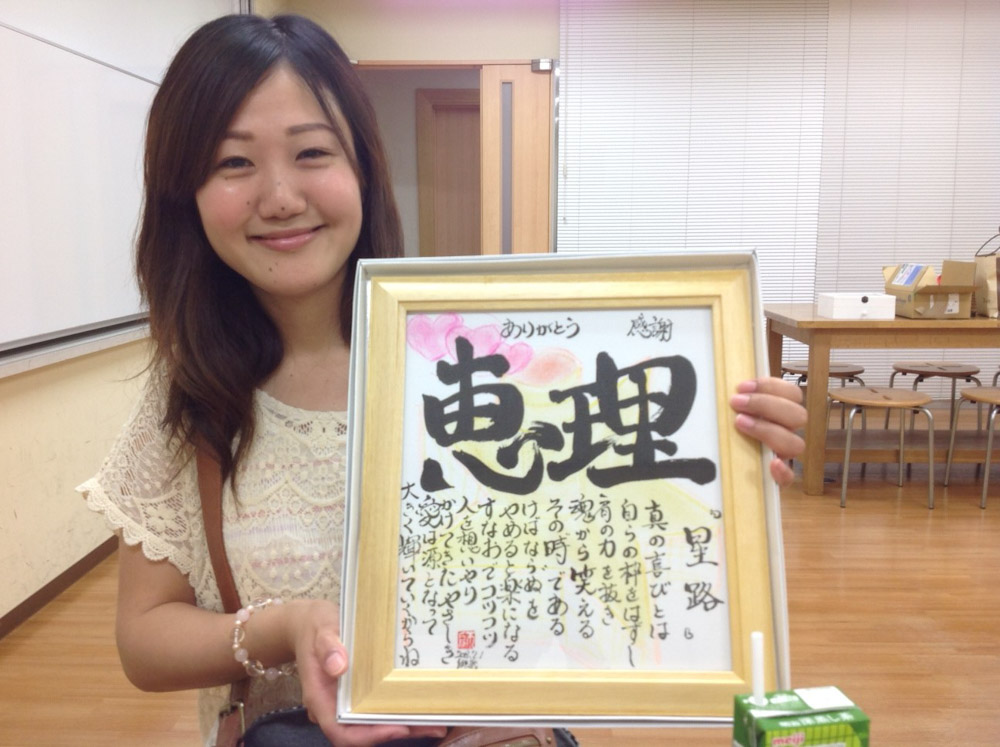 ありがとう 感謝
恵理
星路
真の喜びとは
自らの枠をはずし
肩の力を抜き
魂から笑える
その時である
ばならぬを
やめると楽になる
すなおでコツコツ
人を想いやり
かけてきたやさしさ
愛は源となって
大きく輝いていくからね
meiji